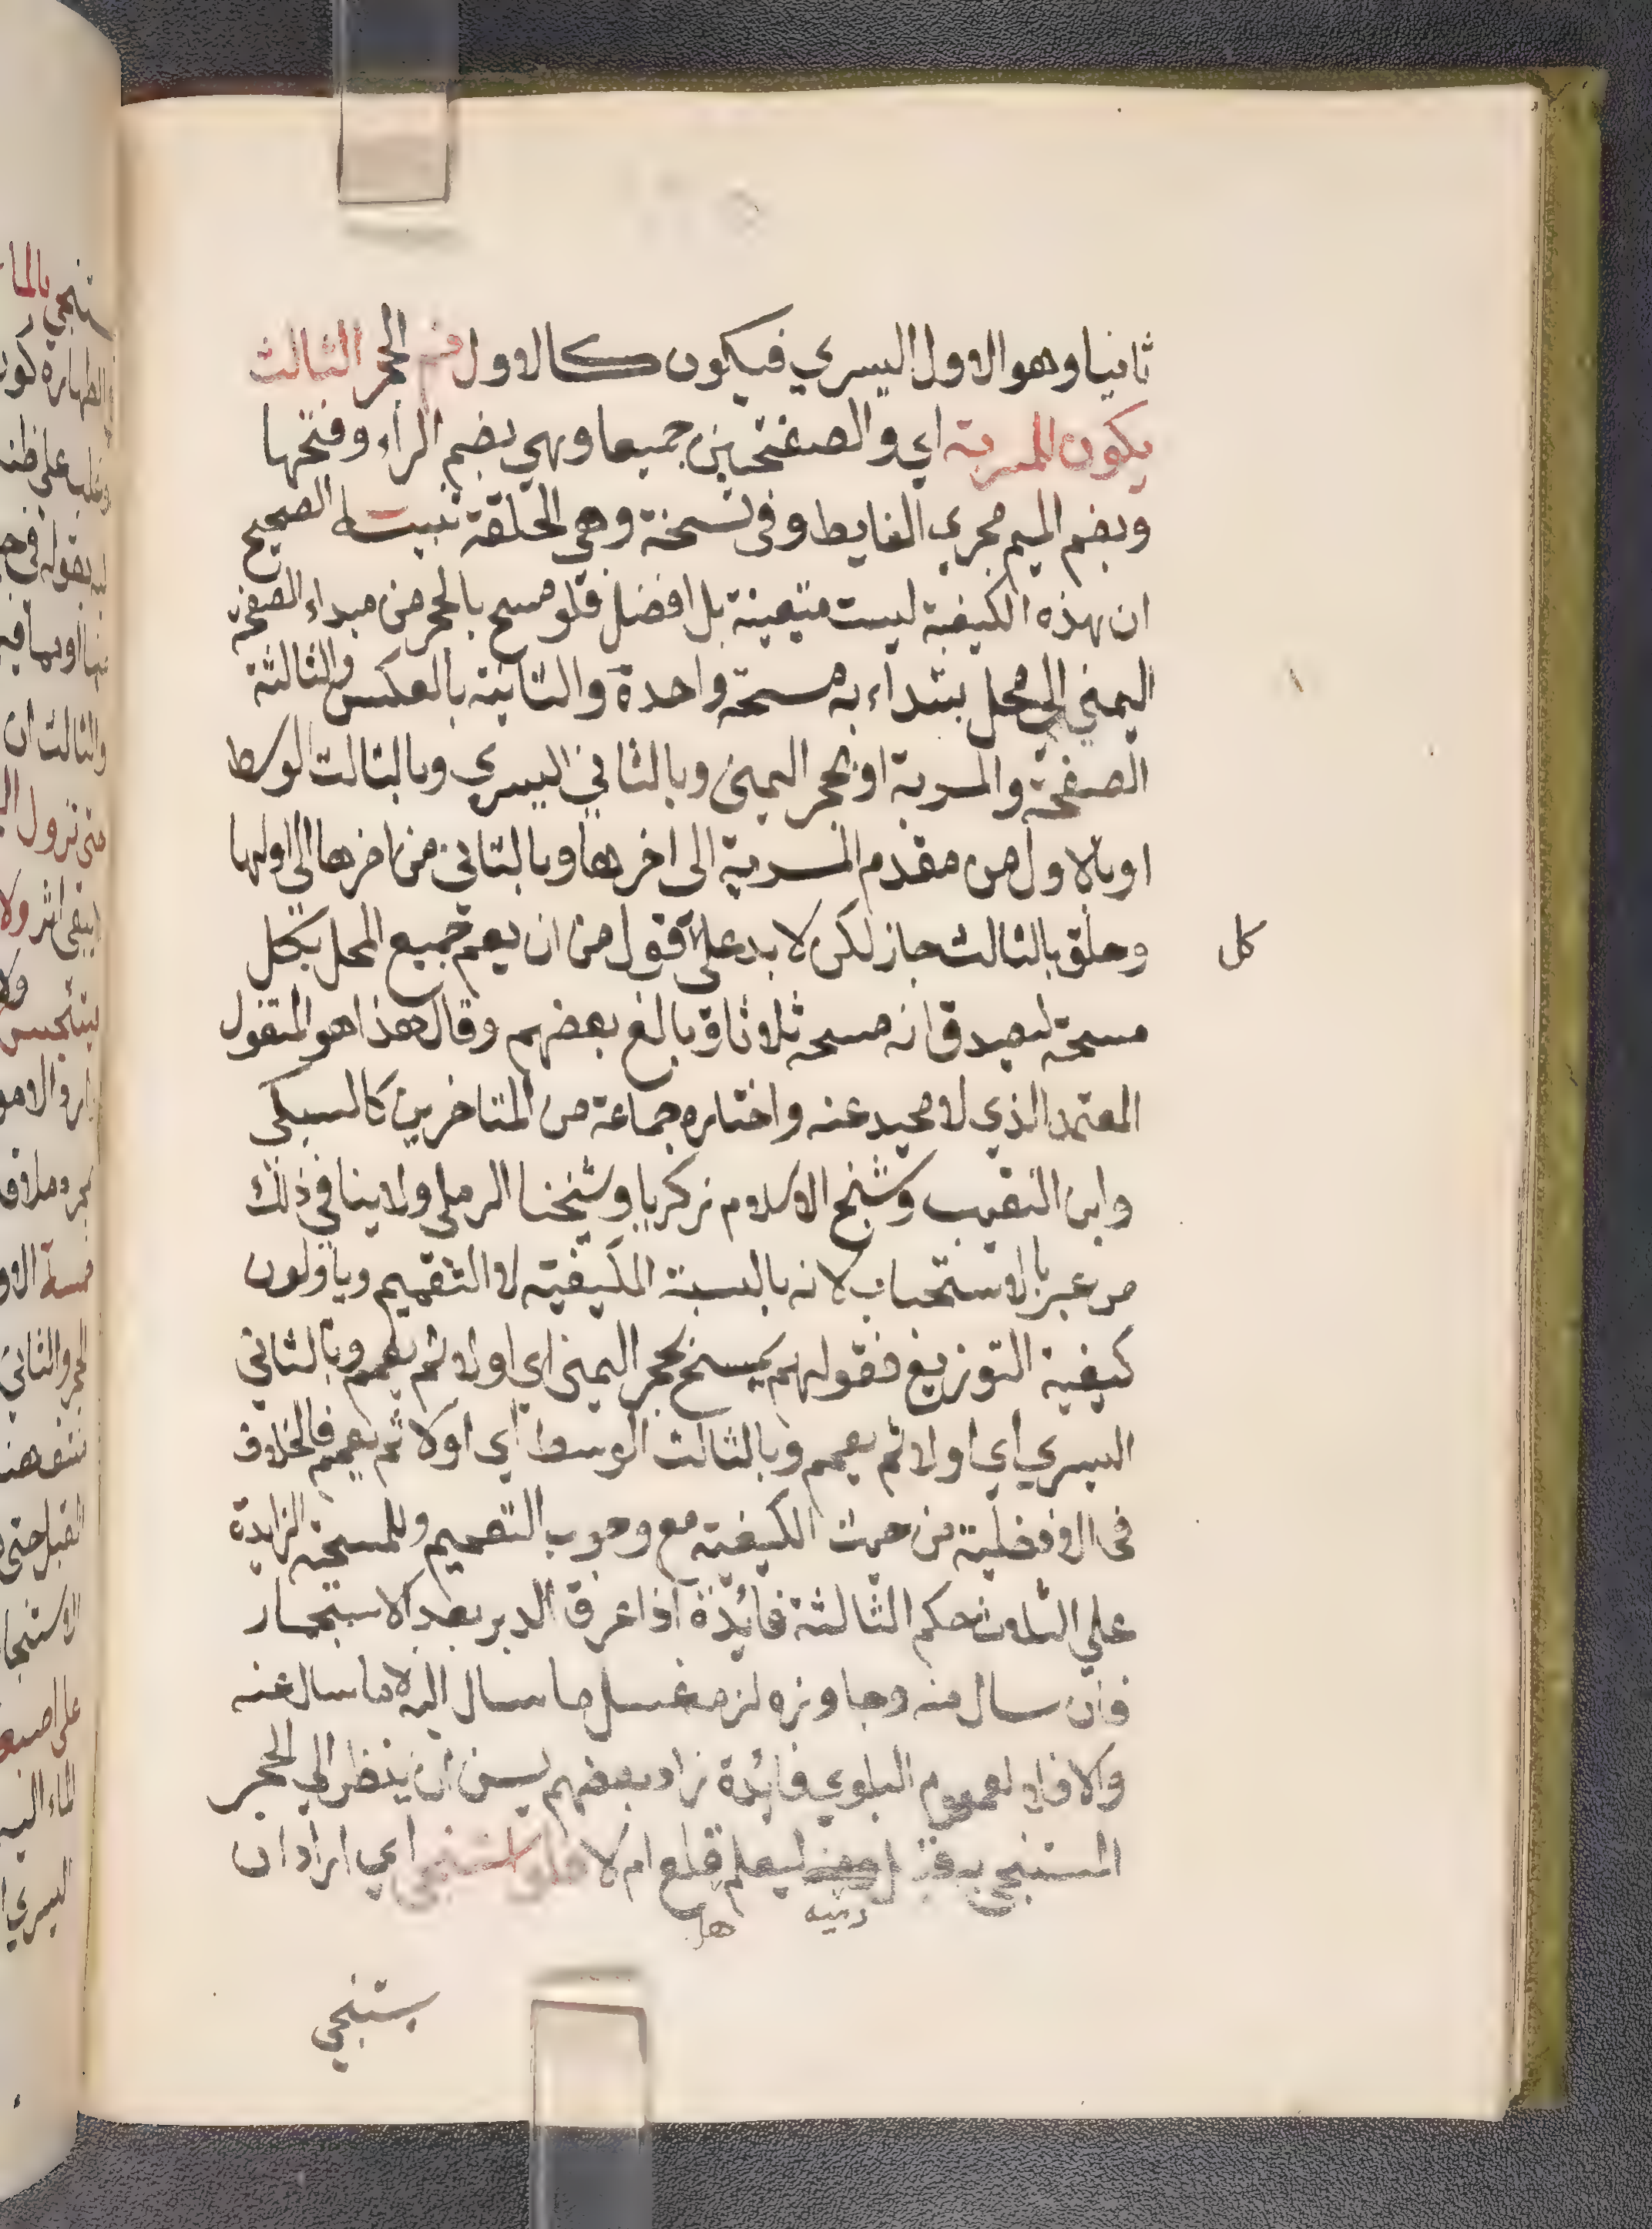 ثانيا وهو الاول اليسري فيكون كالاول ثم الحجر الثالث
يكون للمسربة اي والصفحتين جميعا وهي بضم الراء وفتحها
وبضم الميم مجري الغايط وفي نسخة وهي الحلقة تنبيه الصحيح
ان هذه الكيفية ليست متعينة بل افضل فلو مسح بالحجر من مبداء الصفحة
اليمني الي محل بتداء به مسحة واحدة والثانية بالعكس والثالثة
الصفحة والمسربة او بحجر اليمني وبالثاني اليسري وبالثالث الوسط
او بالاول من مقدم المسربة الي اخرها وبالثاني من اخرها الي اولها
وحلق بالثالث جاز لكن لا بد علي قول من ان يعم جميع المحل بكل
كل
مسحة ليصدق انه مسحه ثلاثا وبالغ بعضهم وقال هذا هو المنقول
المعتمد الذي لا محيد عنه واختاره جماعة من المتاخرين كالسبكي
وابن النقيب وشيخ الاسلام زكريا وشيخنا الرملي ولا ينافي ذلك
من عبر بالاستحباب لانه بالنسبة للكيفية لا التعميم وياولون
كيفية التوزيع فقولهم يمسح بحجر اليمني اي اولا ثم يعمم وبالثاني
اليسري اي اولا ثم يعمم وبالثالث الوسط اي اولا ثم يعمم فالخلاف
في الافضلية من حيث الكيفية مع وجوب التعميم وللمسحة الزايدة
علي الثلاث حكم الثالثة فائدة اذا عرق الدبر بعد الاستجمار
فان سال منه وجاوزه لزمه غسل ما سال اليه لا ما سال عنه
والا فلا لعموم البلوي فائدة زاد بعضهم يسن ان ينظر الي الحجر
المستنجي به قبل ليعلم قلع ام لا فلو استنجي اي اراد ان
رميه هل
يستنجي